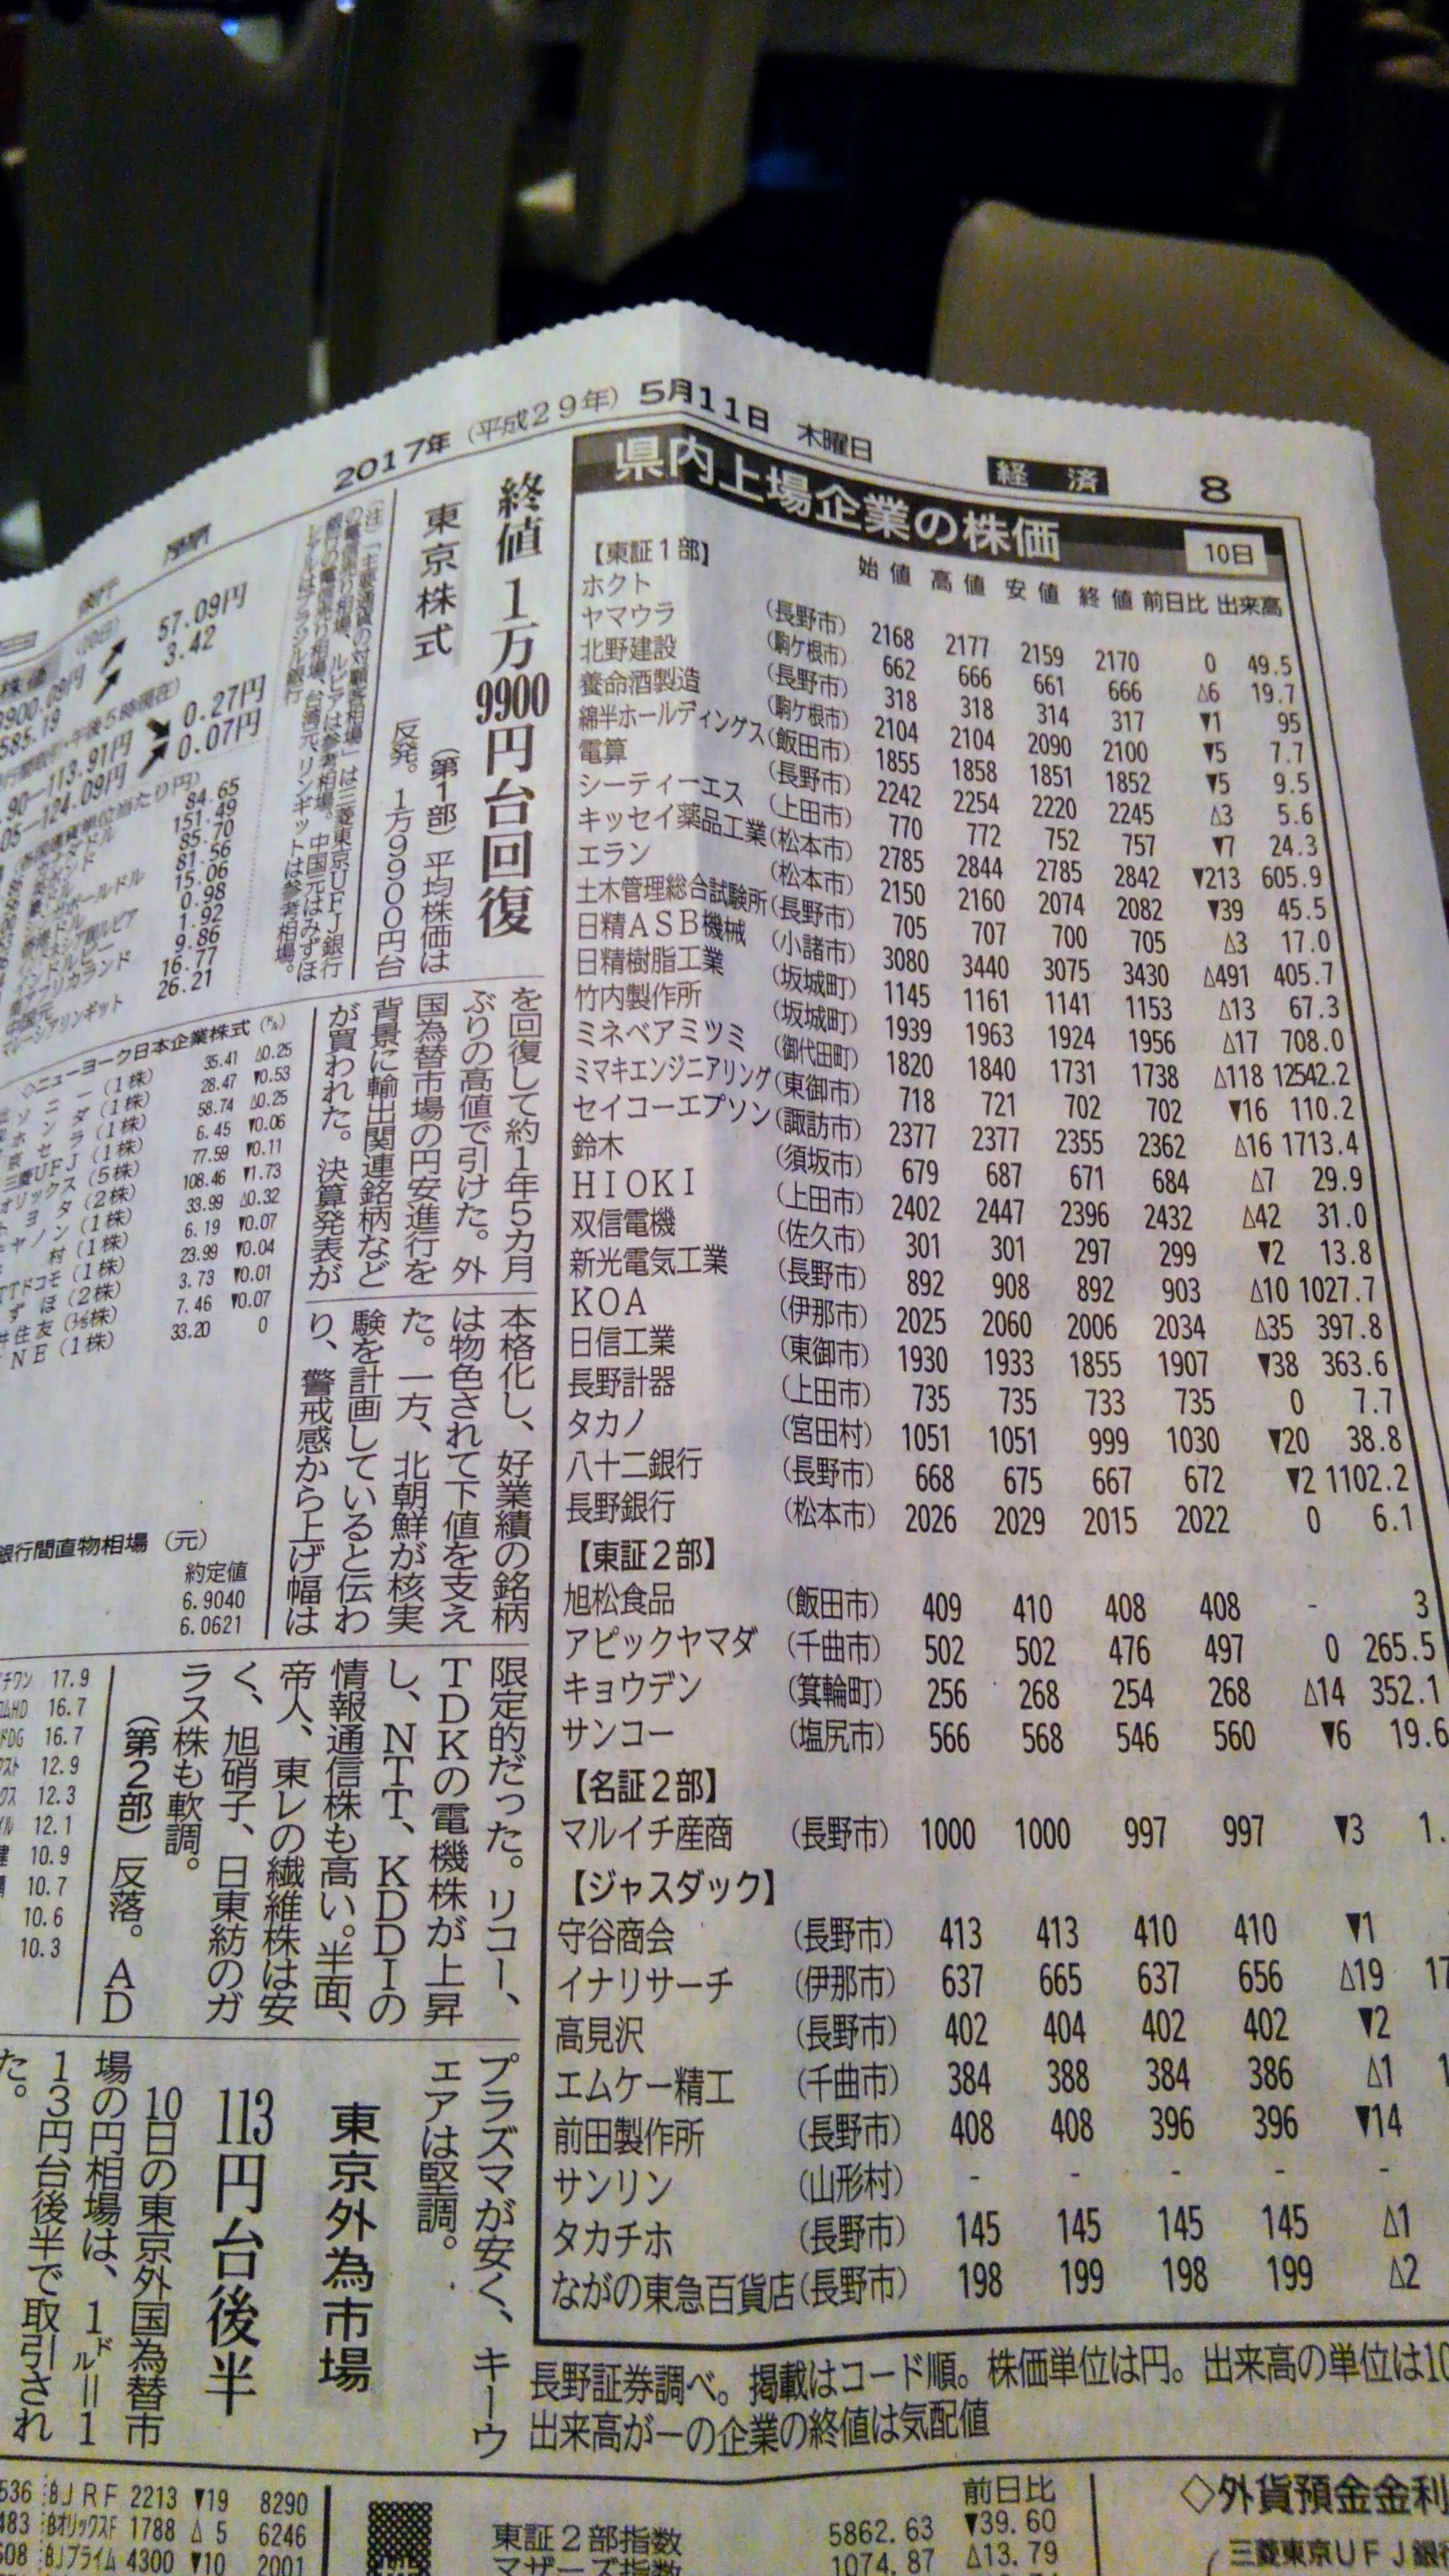 2017年（平成29年）5月11日　木曜日　経済　8
県内上場企業の株価　10日
始値　高値　安値　終値　前日比　出来高
【東証1部】
ホクト（長野市）2168　2177　2159　2170　0　49.5
ヤマウラ（駒ケ根市）662　666　661　666　△6　19.7
北野建設（長野市）318　318　314　317　▼1　95
養命酒製造（駒ケ根市）2104　2104　2090　2100　▼5　7.7
綿半ホールディングス（飯田市）1855　1858　1851　1852　▼5　9.5
電算（長野市）2242　2254　2220　2245　△3　5.6
シーティーエス（上田市）770　772　752　757　▼7　24.3
キッセイ薬品工業（松本市）2785　2844　2785　2842　▼213　605.9
エラン（松本市）2150　2160　2074　2082　▼39　45.5
土木管理総合試験所（長野市）705　707　700　705　△3　17.0
日精ASB機械（小諸市）3080　3440　3075　3430　△491　405.7
日精樹脂工業（坂城町）1145　1161　1141　1153　△13　67.3
竹内製作所（坂城町）1939　1963　1924　1956　△17　708.0
ミネベアミツミ（御代田町）1820　1840　1731　1738　△118　12542.2
ミマキエンジニアリング（東御市）718　721　702　702　▼16　110.2
セイコーエプソン（諏訪市）2377　2377　2355　2362　△16　1713.4
鈴木（須坂市）679　687　671　684　△7　29.9
HIOKI（上田市）2402　2447　2396　2432　△42　31.0
双信電機（佐久市）301　301　297　299　▼2　13.8
新光電気工業（長野市）892　908　892　903　△10　1027.7
KOA（伊那市）2025　2060　2006　2034　△35　397.8
日信工業（東御市）1930　1933　1855　1907　▼38　363.6
長野計器（上田市）735　735　733　735　0　7.7
タカノ（宮田村）1051　1051　999　1030　▼20　38.8
八十二銀行（長野市）668　675　667　672　▼2　1102.2
長野銀行（松本市）2026　2029　2015　2022　0　6.1
【東証2部】
旭松食品（飯田市）409　410　408　408　-　3
アピックヤマダ（千曲市）502　502　476　497　0　265.5
キョウデン（箕輪町）256　268　254　268　△14　352.1
サンコー（塩尻市）566　568　546　560　▼6　19.6
【名証2部】
マルイチ産商（長野市）1000　1000　997　997　▼3　1.
【ジャスダック】
守谷商会（長野市）413　413　410　410　▼1
イナリサーチ（伊那市）637　665　637　656　△19　17
高見沢（長野市）402　404　402　402　▼2
エムケー精工（千曲市）384　388　384　386　△1　1
前田製作所（長野市）408　408　396　396　▼14
サンリン（山形村）-　-　-　-　-
タカチホ（長野市）145　145　145　145　△1
ながの東急百貨店（長野市）198　199　198　199　△2
長野証券調べ。掲載はコード順。株価単位は円。出来高の単位は10
出来高が一の企業の終値は気配値
終値1万9900円台回復
東京株式
（第1部）平均株価は
反発。1万9900円台
を回復して約1年5カ月
ぶりの高値で引けた。外
国為替市場の円安進行を
背景に輸出関連銘柄など
が買われた。決算発表が
本格化し、好業績の銘柄
は物色されて下値を支え
た。一方、北朝鮮が核実
験を計画していると伝わ
り、警戒感から上げ幅は
限定的だった。リコー、
TDKの電機株が上昇
し、NTT、KDDIの
情報通信株も高い。半面、
帝人、東レの繊維株は安
く、旭硝子、日東紡のガ
ラス株も軟調。
（第2部）反落。AD
プラズマが安く、キーウ
ェアは堅調。
東京外為市場
113円台後半
10日の東京外国為替市
場の円相場は、1ドル＝1
13円台後半で取引され
た。
57.09円
3.42
0.27円
0.07円
84.65
151.49
85.70
81.56
15.06
0.98
1.92
9.86
16.77
26.21
◇ニューヨーク日本企業株式（ドル）
（1株）35.41　△0.25
（1株）28.47　▼0.53
（1株）58.74　△0.25
三菱UFJ（1株）6.45　▼0.06
オリックス（5株）77.59　▼0.11
（2株）108.46　▼1.73
（1株）33.99　△0.32
村（1株）6.19　▼0.07
ドコモ（1株）23.99　▼0.04
ずほ（2株）3.73　▼0.01
井住友（⅕株）7.46　▼0.07
NE（1株）33.20　0
銀行間直物相場（元）
約定値
6.9040
6.0621
17.9
16.7
16.7
12.9
12.3
12.1
10.9
10.7
10.6
10.3
536　BJRF　2213　▼19　8290
483　BオリックスF　1788　△5　6246
508　BJプライム　4300　▼10　2001
前日比
東証2部指数　5862.63　▼39.60
マザーズ指数　1074.87　△13.79
◇外貨預金金利
三菱東京UFJ銀